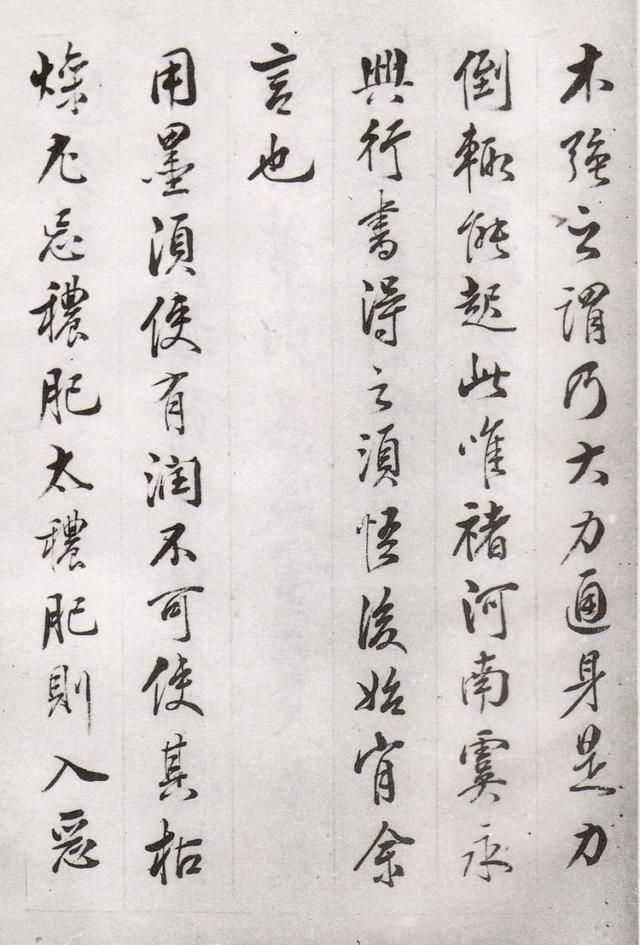 木強之謂乃大力通身是力
倒輒能起此唯褚河南虞永
興行書得之須悟後始肯余
言也
用墨須使有潤不可使其枯
燥尤忌穠肥太穠肥則入惡